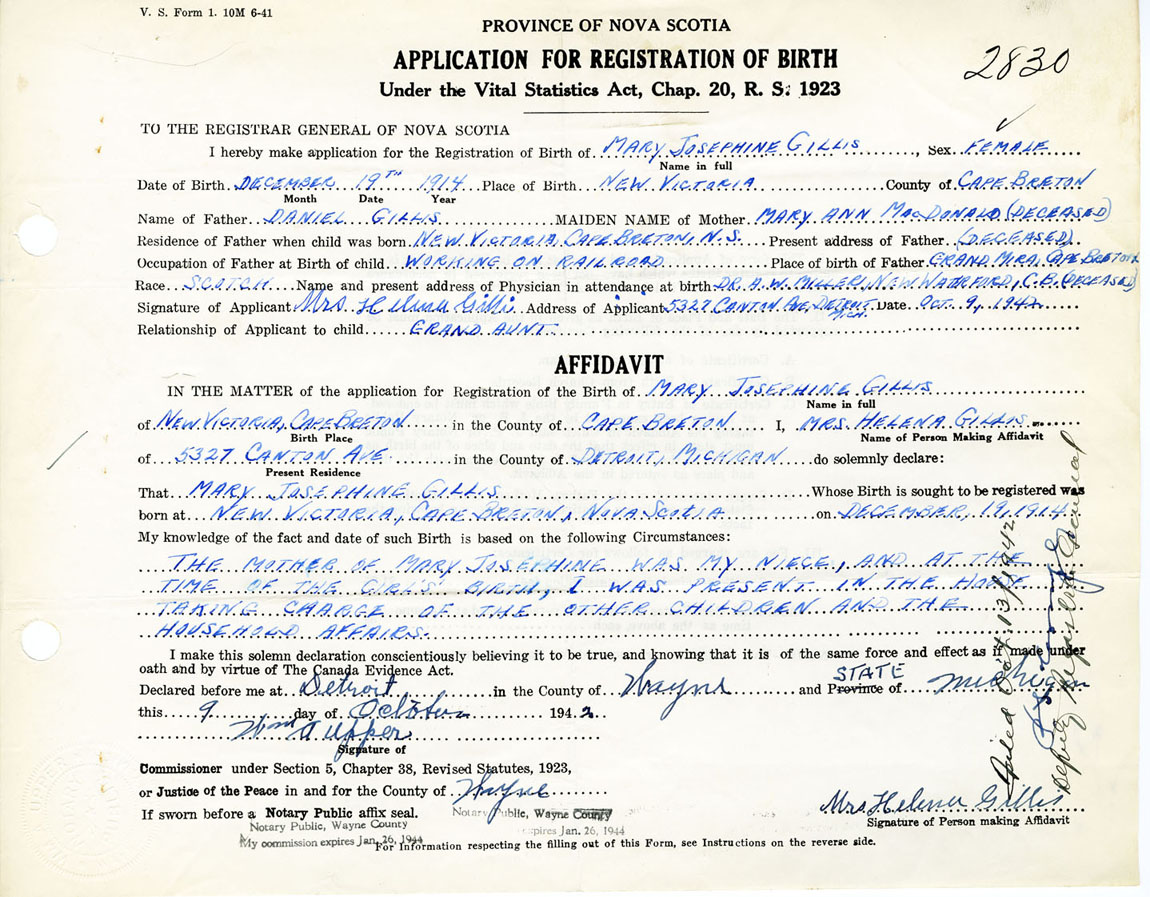 V. S. Form 1. 10M 6-41
PROVINCE OF NOVA SCOTIA
APPLICATION FOR REGISTRATION OF BIRTH
2830
Under the Vital Statistics Act, Chap. 20, R. S. 1923
TO THE REGISTRAR GENERAL OF NOVA SCOTIA
I hereby make application for the Registration of Birth of MARY JOSEPHINE GILLIS, Sex. FEMALE
Name in full
Date of Birth DECEMBER 19TH 1914 Place of Birth NEW VICTORIA County of CAPE BRETON
Month Date Year
Name of Father DANIEL GILLIS MAIDEN NAME of Mother MARY ANN MacDONALD (DECEASED)
Residence of Father when child was born NEW VICTORIA, CAPE BRETON, N.S. Present address of Father (DECEASED)
Occupation of Father at Birth of child WORKING ON RAILROAD Place of birth of Father GRAND MIRA, CAPE BRETON
Race SCOTCH Name and present address of Physician in attendance at birth DR. A.W. MILLER, NEW WATERFORD, C.B. (DECEASED)
Signature of Applicant Mrs Helena Gillis Address of Applicant 5327 CANTON AVE, DETROIT MICH. Date OCT. 9, 1942
Relationship of Applicant to child GRAND AUNT
AFFIDAVIT
IN THE MATTER of the application for Registration of the Birth of MARY JOSEPHINE GILLIS
Name in full
of NEW VICTORIA, CAPE BRETON in the County of CAPE BRETON I, MRS. HELENA GILLIS
Birth Place Name of Person Making Affidavit
of 5327 CANTON AVE in the County of DETROIT, MICHIGAN do solemnly declare:
Present Residence
That MARY JOSEPHINE GILLIS Whose Birth is sought to be registered was
born at NEW VICTORIA, CAPE BRETON, NOVA SCOTIA on DECEMBER, 19, 1914
My knowledge of the fact and date of such Birth is based on the following Circumstances:
THE MOTHER OF MARY JOSEPHINE WAS MY NIECE, AND AT THE
TIME OF THE GIRL'S BIRTH, I WAS PRESENT IN THE HOME
TAKING CHARGE OF THE OTHER CHILDREN AND THE
HOUSEHOLD AFFAIRS.
I make this solemn declaration conscientiously believing it to be true, and knowing that it is of the same force and effect as if made under
oath and by virtue of The Canada Evidence Act.
Declared before me at Detroit in the County of Wayne and Province of STATE Michigan
this 9 day of October 1942
Wm A Upper
Signature of
Commissioner under Section 5, Chapter 38, Revised Statutes, 1923,
or Justice of the Peace in and for the County of Wayne
If sworn before a Notary Public affix seal.
Notary Public, Wayne County
expires Jan. 26, 1944
Notary Public, Wayne County
My commission expires Jan. 26, 1944
Mrs Helena Gillis
Signature of Person making Affidavit
For Information respecting the filling out of this Form, see Instructions on the reverse side.
Filed Oct. 13/1942
Deputy Registrar General